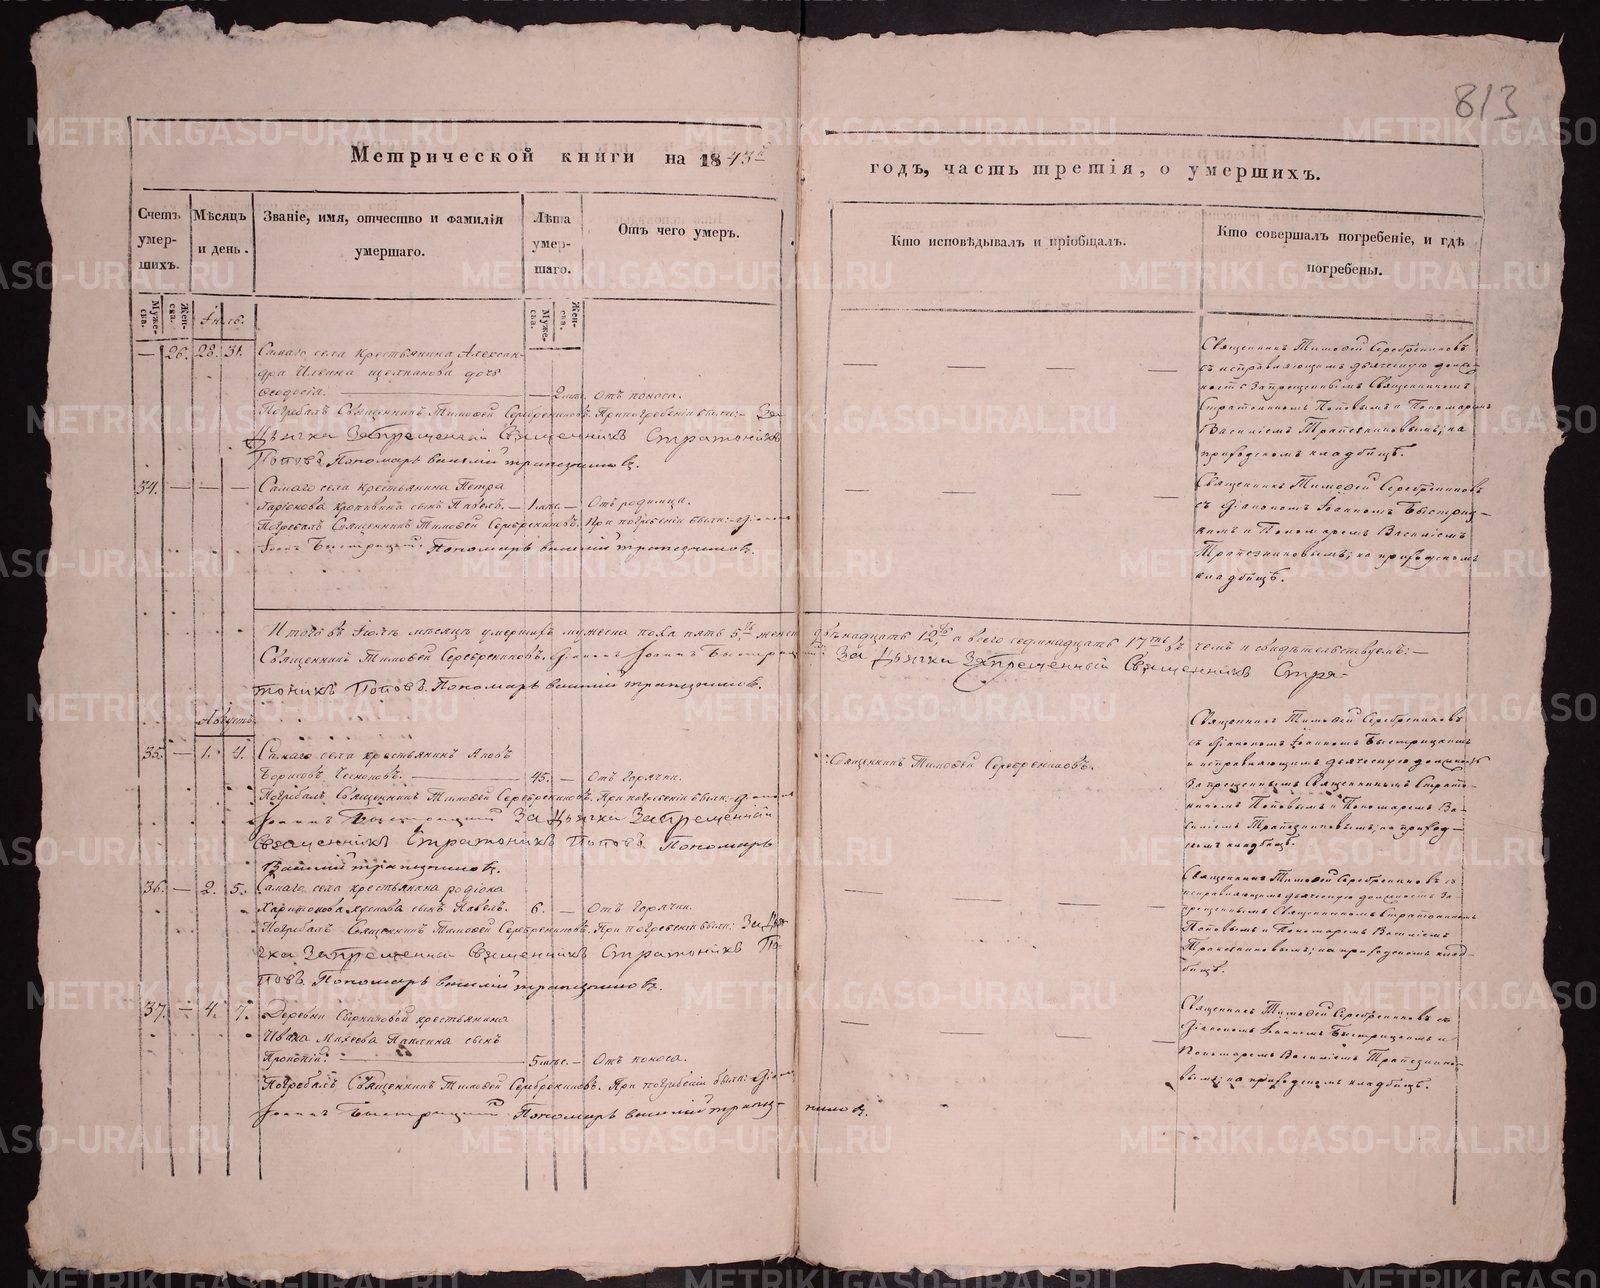 813
Метрической книги на 1843й годъ, часть третія, о умершихъ.
Счетъ умер-шихъ.
Мѣсяцъ и день.
Званіе, имя, отчество и фамилія умершаго.
Лѣта умер-шаго.
Отъ чего умеръ.
Кто исповѣдывалъ и пріобщалъ.
Кто совершалъ погребеніе, и гдѣ погребены.
Муже-ска.
Жен-ска.
Іюль.
Муже-ска.
Жен-ска.
— 26. 28. 31. Самаго села крестьянина Алексан-
дра Ильина дочь
Феодосія. — 2 Отъ поноса.
Погребалъ Священникъ Тимофей Серебрениковъ. При погребеніи были: За
Дьячка Запрещенный Священникъ Стратоникъ
Поповъ. Пономарь Василій Трапезниковъ.
Священникъ Тимофей Серебрениковъ
съ исправляющимъ дьяческую долж-
ность Запрещеннымъ Священникомъ
Стратоникомъ Поповымъ и Пономаремъ
Василіемъ Трапезниковымъ; на
приходскомъ кладбищѣ.
34. — — — Самаго села крестьянина Петра
Ларіонова сынъ Павелъ. — 1 мѣс. — Отъ родимца.
Погребалъ Священникъ Тимофей Серебрениковъ. При погребеніи были: Діаконъ
Іоаннъ Быстрицкій. Пономарь Василій Трапезниковъ.
Священникъ Тимофей Серебрениковъ
съ Діакономъ Іоанномъ Быстриц-
кимъ и Пономаремъ Василіемъ
Трапезниковымъ; на приходскомъ
кладбищѣ.
Итого въ Іюлѣ мѣсяцѣ умершихъ мужеска пола пять 5, женска двѣнадцать 12, а всего семнадцать 17 въ чемъ и свидѣтельствуемъ: —
Священникъ Тимофей Серебрениковъ. Діаконъ Іоаннъ Быстрицкій. За Дьячка Запрещенный Священникъ Стра-
тоникъ Поповъ. Пономарь Василій Трапезниковъ.
Августъ.
35. — 1. 4. Самаго села крестьянинъ
Борисовъ — 45. — Отъ горячки.
Священникъ Тимофей Серебрениковъ.
Погребалъ Священникъ Тимофей Серебрениковъ. При погребеніи были: Діаконъ
Іоаннъ Быстрицкій За Дьячка Запрещенный
Священникъ Стратоникъ Поповъ Пономарь
Василій Трапезниковъ.
Священникъ Тимофей Серебрениковъ
съ Діакономъ Іоанномъ Быстрицкимъ
и исправляющимъ дьяческую должность
Запрещеннымъ Священникомъ Страто-
никомъ Поповымъ и Пономаремъ Ва-
силіемъ Трапезниковымъ; на приход-
скомъ кладбищѣ.
36. — 2. 5. Самаго села крестьянина Родіона
Харитонова сынъ Павелъ. 6. — Отъ горячки.
Погребалъ Священникъ Тимофей Серебрениковъ. При погребеніи были: За Дья
чка Запрещенный Священникъ Стратоникъ По
повъ. Пономарь Василій Трапезниковъ.
Священникъ Тимофей Серебрениковъ съ
исправляющимъ дьяческую должность За-
прещеннымъ Священникомъ Стратоникомъ
Поповымъ и Пономаремъ Василіемъ
Трапезниковымъ; на приходскомъ клад-
бищѣ.
37. — 4. 7. Деревни крестьянина
Ивана Михеева сынъ
Прокопій. — 5 мѣс. — Отъ поноса.
Погребалъ Священникъ Тимофей Серебрениковъ. При погребеніи были: Діаконъ
Іоаннъ Быстрицкій. Пономарь Василій Трапез-никовъ.
Священникъ Тимофей Серебрениковъ съ
Діакономъ Іоанномъ Быстрицкимъ и
Пономаремъ Василіемъ Трапезнико-
вымъ; на приходскомъ кладбищѣ.
METRIKI.GASO-URAL.RU